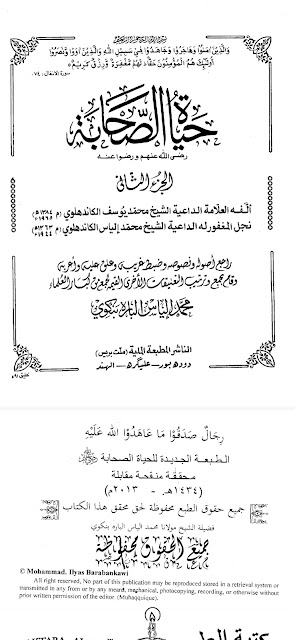 وَالَّذِينَ آمَنُوا وَهَاجَرُوا وَجَاهَدُوا فِي سَبِيلِ اللَّهِ وَالَّذِينَ آوَوا وَّنَصَرُوا
أُولَٰئِكَ هُمُ الْمُؤْمِنُونَ حَقًّا لَهُمْ مَغْفِرَةٌ وَّرِزْقٌ كَرِيمٌ
سورة الانفال: ٧٤
حياة الصحابة
رضى الله عنهم ورضوا عنه
الجزء الثانى
ألفه العلامة الداعية الشيخ محمد يوسف الكاندهلوي
نجل المغفور له الداعية الشيخ محمد إلياس الكاندهلوي
راجع أصوله ونصوصه وضبط غريبه وعلق عليه وأعربه
وقام بجمع وترتيب التعليقات الأخرى القيمة لجمع من كبار العلماء
محمد الياس الباره بنكوي
الناشر المطبعة الملية (ملت بريس)
دودھ بور - عليگرھ - الهند
رِجَالٌ صَدَقُوْا مَا عَاهَدُوْا اللهَ عَلَيْهِ
الطبعة الجديدة للحياة الصحابة
محققة منقحة مقابلة
(١٤٣٤هـ - ٢٠١٣م)
جميع حقوق الطبع محفوظة لحق محقق هذا الكتاب
فضيلة الشيخ مولانا محمد الياس الباره بنكوي
جميع الحقوق محفوظة
© Mohammad. Ilyas Barabankawi
All right reserved, No part of this publication may be reproduced stored in a retrieval system or
transmitted in any from or by any meard, mechanical, photocopying, recording, or otherwise without
prior written permission of the editor (Muhaqquique).